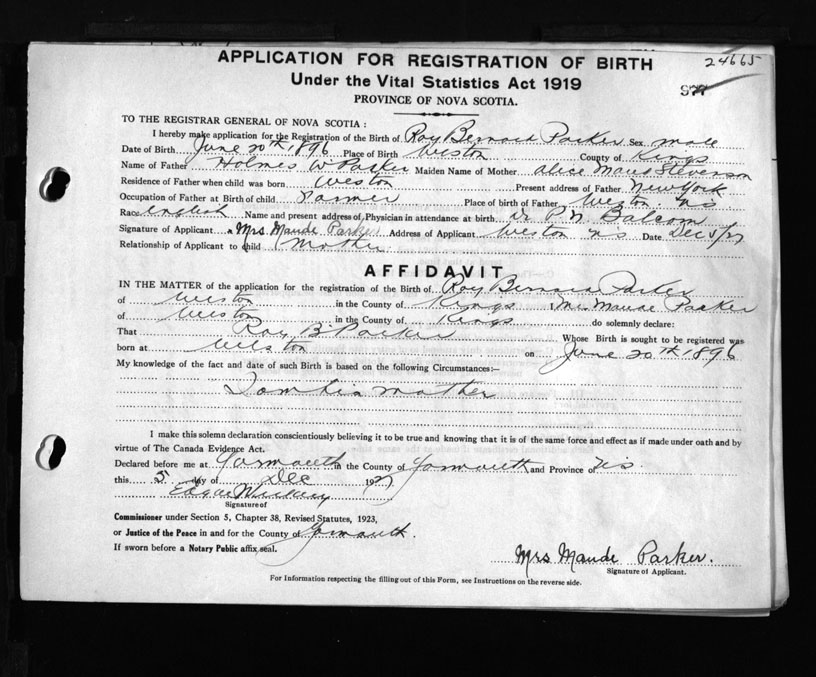 24665
APPLICATION FOR REGISTRATION OF BIRTH
Under the Vital Statistics Act 1919
PROVINCE OF NOVA SCOTIA.
TO THE REGISTRAR GENERAL OF NOVA SCOTIA:
I hereby make application for the Registration of the Birth of Roy Bernard Parker Sex male
Date of Birth June 20th, 1896 Place of Birth Weston County of Kings
Name of Father Holmes W Parker Maiden Name of Mother Alice Maud Stevenson
Residence of Father when child was born Weston Present address of Father New York
Occupation of Father at Birth of child Farmer Place of birth of Father Weston N.S.
Race English Name and present address of Physician in attendance at birth Dr P. N. Balcom
Signature of Applicant Mrs Maude Parker Address of Applicant Weston NS Date Dec 5/27
Relationship of Applicant to child Mother
AFFIDAVIT
IN THE MATTER of the application for the registration of the Birth of Roy Bernard Parker
of Weston in the County of Kings I Mrs Maude Parker
of Weston in the County of Kings do solemnly declare:
That Roy B Parker Whose Birth is sought to be registered was
born at Weston on June 20th, 1896
My knowledge of the fact and date of such Birth is based on the following Circumstances:—
I am his mother
I make this solemn declaration conscientiously believing it to be true and knowing that it is of the same force and effect as if made under oath and by
virtue of The Canada Evidence Act.
Declared before me at Yarmouth in the County of Yarmouth and Province of N.S.
this 5 day of Dec 1927
Signature of
Commissioner under Section 5, Chapter 38, Revised Statutes, 1923,
or Justice of the Peace in and for the County of Yarmouth.
If sworn before a Notary Public affix seal.
Mrs Maude Parker.
Signature of Applicant.
For Information respecting the filling out of this Form, see Instructions on the reverse side.